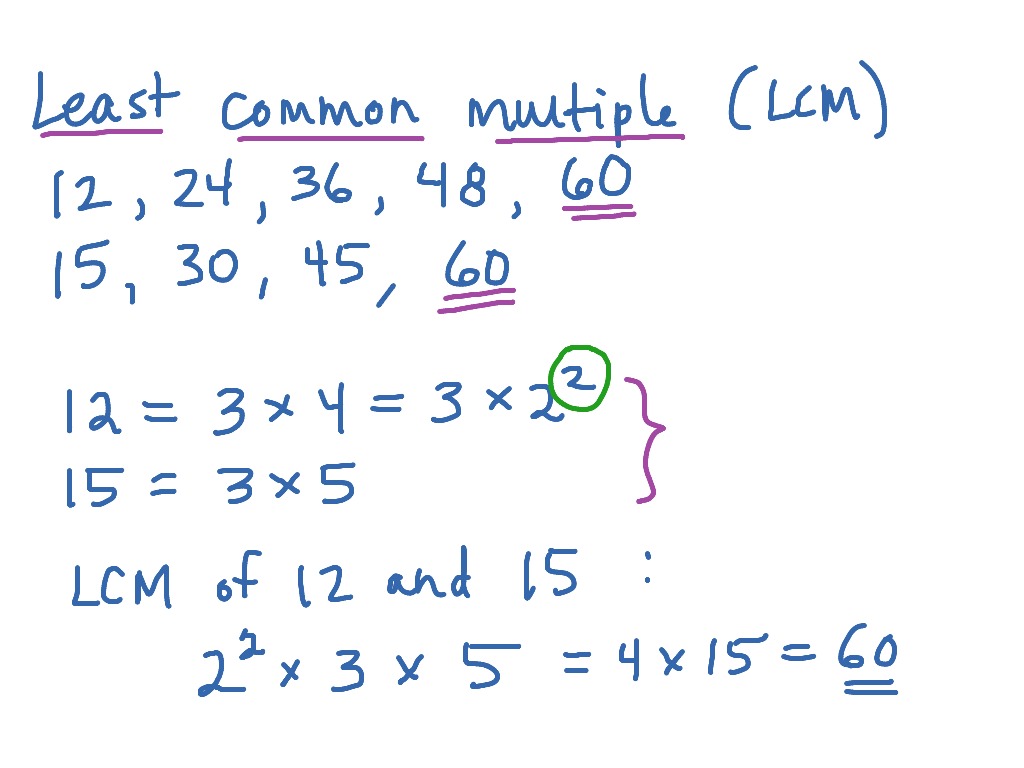 Least common multiple (LCM)
12, 24, 36, 48, 60
15, 30, 45, 60
12 = 3 × 4 = 3 × 2²
15 = 3 × 5
LCM of 12 and 15 :
2² × 3 × 5 = 4 × 15 = 60